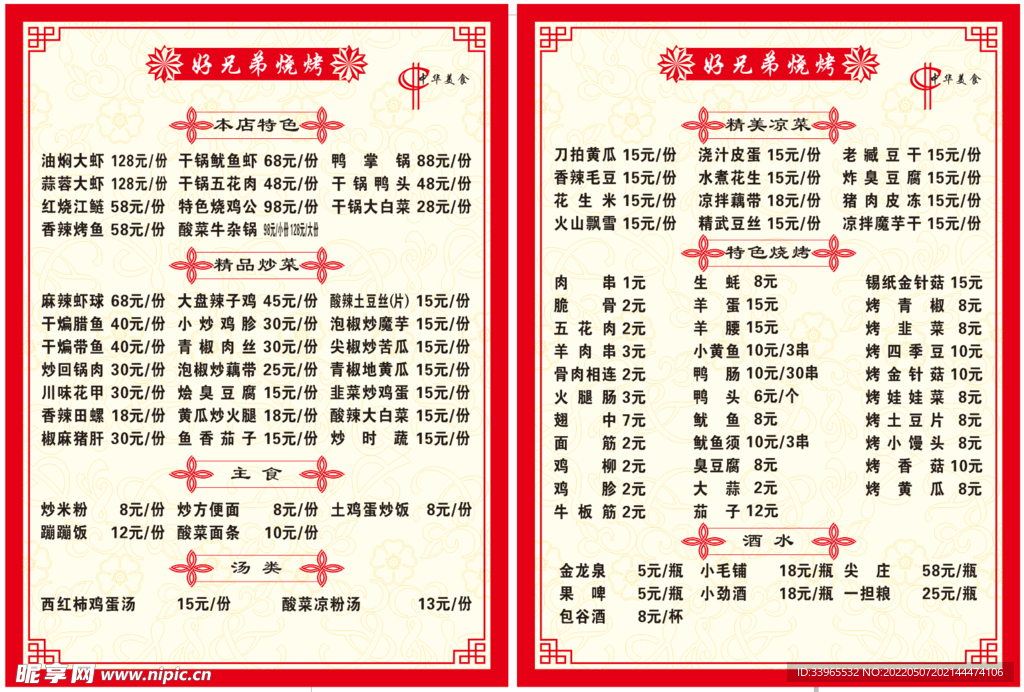 好兄弟烧烤
中华美食
本店特色
油焖大虾 128元/份 干锅鱿鱼虾 68元/份 鸭掌锅 88元/份
蒜蓉大虾 128元/份 干锅五花肉 48元/份 干锅鸭头 48元/份
红烧江鲢 58元/份 特色烧鸡公 98元/份 干锅大白菜 28元/份
香辣烤鱼 58元/份 酸菜牛杂锅 98元/小份 128元/大份
精品炒菜
麻辣虾球 68元/份 大盘辣子鸡 45元/份 酸辣土豆丝(片) 15元/份
干煸腊鱼 40元/份 小炒鸡胗 30元/份 泡椒炒魔芋 15元/份
干煸带鱼 40元/份 青椒肉丝 30元/份 尖椒炒苦瓜 15元/份
炒回锅肉 30元/份 泡椒炒藕带 25元/份 青椒地黄瓜 15元/份
川味花甲 30元/份 烩臭豆腐 15元/份 韭菜炒鸡蛋 15元/份
香辣田螺 18元/份 黄瓜炒火腿 18元/份 酸辣大白菜 15元/份
椒麻猪肝 30元/份 鱼香茄子 15元/份 炒时蔬 15元/份
主食
炒米粉 8元/份 炒方便面 8元/份 土鸡蛋炒饭 8元/份
蹦蹦饭 12元/份 酸菜面条 10元/份
汤类
西红柿鸡蛋汤 15元/份 酸菜凉粉汤 13元/份
昵享网 www.nipic.cn
好兄弟烧烤
中华美食
精美凉菜
刀拍黄瓜 15元/份 浇汁皮蛋 15元/份 老臧豆干 15元/份
香辣毛豆 15元/份 水煮花生 15元/份 炸臭豆腐 15元/份
花生米 15元/份 凉拌藕带 18元/份 猪肉皮冻 15元/份
火山飘雪 15元/份 精武豆丝 15元/份 凉拌魔芋干 15元/份
特色烧烤
肉串 1元 生蚝 8元 锡纸金针菇 15元
脆骨 2元 羊蛋 15元 烤青椒 8元
五花肉 2元 羊腰 15元 烤韭菜 8元
羊肉串 3元 小黄鱼 10元/3串 烤四季豆 10元
骨肉相连 2元 鸭肠 10元/30串 烤金针菇 10元
火腿肠 3元 鸭头 6元/个 烤娃娃菜 8元
翅中 7元 鱿鱼 8元 烤土豆片 8元
面筋 2元 鱿鱼须 10元/3串 烤小馒头 8元
鸡柳 2元 臭豆腐 8元 烤香菇 10元
鸡胗 2元 大蒜 2元 烤黄瓜 8元
牛板筋 2元 茄子 12元
酒水
金龙泉 5元/瓶 小毛铺 18元/瓶 尖庄 58元/瓶
果啤 5元/瓶 小劲酒 18元/瓶 一担粮 25元/瓶
包谷酒 8元/杯
ID:33965532 NO:20220507202144474106